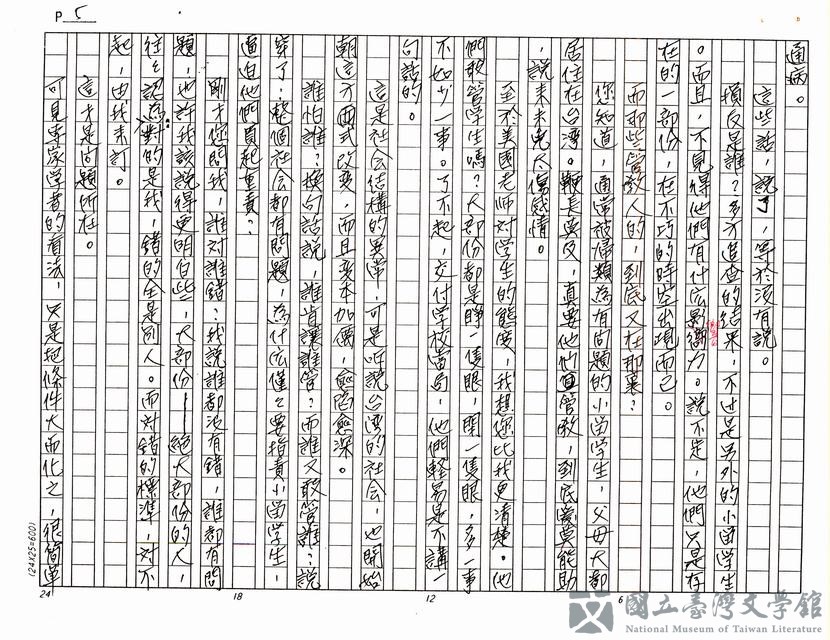 P 5
通病。
這些話，說了，等於沒有說。
損友是誰？多方追查的結果，不過是另外的小留學生
。而且，不見得他們有什么影響力。說不定，他們只是存
在的一部份，在不巧的時空出現而已。
而那些管教人的，到底又在那裏？
您知道，通常被歸類為有問題的小留學生，父母大都
居住在台灣。鞭長莫及，真要他們直管敎，到底愛莫能助
，說來未免大傷感情。
至於美國老師對學生的態度，我想您比我更清楚。他
們敢管學生嗎？大部份都是睜一隻眼，閉一隻眼，多一事
不如少一事。了不起，交付學校當局，他們輕易是不講一
句話的。
這是社会結構的異常，可是听說台灣的社会，也開始
朝這方面式改变，而且变本加厲，愈陷愈深。
誰怕誰？換句話說，誰肯讓誰管？而誰又敢管誰？說
穿了，整個社会都有問題，為什么僅僅要指責小留學生，
逼迫他們負起重責？
剛才您問我，誰對誰錯？我說誰都沒有錯，誰都有問
題，也許我該說得更明白些，大部份——絕大部份的人，
往往認為對的是我，錯的全是別人。而對錯的標準，對不
起，由我來訂。
這才是问題所在。
可見專家學者的看法，只是把條件大而化之，很簡單
(24X25=600)
24
18
12
6
國立臺灣文學館
National Museum of Taiwan Literature